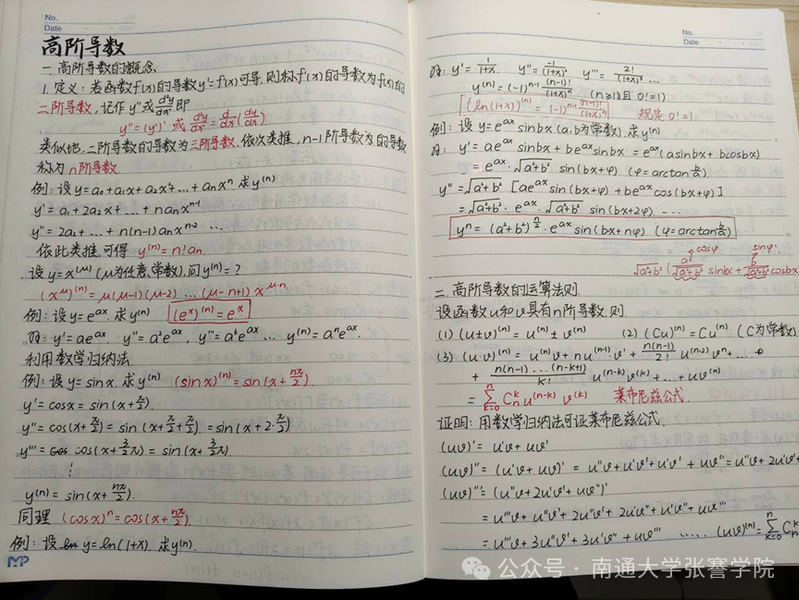 No.
Date
高阶导数
一.高阶导数的概念
1.定义:若函数f(x)的导数y'=f'(x)可导,则称f'(x)的导数为f(x)的
二阶导数,记作y''或d²y/dx²即
y''=(y')' 或 d²y/dx² = d/dx(dy/dx)
类似地,二阶导数的导数为三阶导数,依次类推,n-1阶导数的导数
称为n阶导数
例:设y=a₀+a₁x+a₂x²+…+aₙxⁿ 求y⁽ⁿ⁾
y'=a₁+2a₂x+…+naₙxⁿ⁻¹
y''=2a₂+…+n(n-1)aₙxⁿ⁻² …
依此类推,可得 y⁽ⁿ⁾=n!aₙ
设y=x^(μ)(μ为任意常数),问y⁽ⁿ⁾=?
(x^μ)⁽ⁿ⁾=μ(μ-1)(μ-2)…(μ-n+1)x^(μ-n)
例:设y=e^(ax) 求y⁽ⁿ⁾ (eˣ)⁽ⁿ⁾=eˣ
y'=ae^(ax) y''=a²e^(ax), y'''=a³e^(ax) … y⁽ⁿ⁾=aⁿe^(ax)
利用数学归纳法
例:设y=sinx.求y⁽ⁿ⁾ (sinx)⁽ⁿ⁾=sin(x+nπ/2)
y'=cosx=sin(x+π/2)
y''=cos(x+π/2)=sin(x+π/2+π/2)=sin(x+2·π/2)
y'''=cos(x+2/2π)=sin(x+3/2π)
⋮
y⁽ⁿ⁾=sin(x+nπ/2)
同理 (cosx)ⁿ=cos(x+nπ/2)
例:设y=ln(1+x).求y⁽ⁿ⁾
MP
No.
Date
y'=1/(1+x) y''=-1/(1+x)² y'''=2!/(1+x)³ …
y⁽ⁿ⁾=(-1)ⁿ⁻¹ (n-1)!/(1+x)ⁿ (n≥1且0!=1)
(ln(1+x))⁽ⁿ⁾=(-1)ⁿ⁻¹ (n-1)!/(1+x)ⁿ 规定0!=1
例:设y=e^(ax)sinbx(a,b为常数),求y⁽ⁿ⁾
y'=ae^(ax)sinbx+be^(ax)sinbx=e^(ax)(asinbx+bcosbx)
=e^(ax)·√(a²+b²) sin(bx+φ) (φ=arctan b/a)
y''=√(a²+b²)[ae^(ax)sin(bx+φ)+be^(ax)cos(bx+φ)]
=√(a²+b²)·e^(ax)·√(a²+b²) sin(bx+2φ) …
yⁿ=(a²+b²)^(n/2)·e^(ax)sin(bx+nφ) (φ=arctan b/a)
cosφ sinφ
√(a²+b²)(a/√(a²+b²) sinbx+b/√(a²+b²) cosbx
二.高阶导数的运算法则
设函数u和v具有n阶导数,则
(1)(u±v)⁽ⁿ⁾=u⁽ⁿ⁾±v⁽ⁿ⁾ (2)(Cu)⁽ⁿ⁾=Cu⁽ⁿ⁾(C为常数)
(3)(u·v)⁽ⁿ⁾=u⁽ⁿ⁾v+nu⁽ⁿ⁻¹⁾·v'+n(n-1)/2! u⁽ⁿ⁻²⁾v''+…
+n(n-1)…(n-k+1)/k! u⁽ⁿ⁻ᵏ⁾v⁽ᵏ⁾+…+uv⁽ⁿ⁾
=∑ₖ₌₀ⁿ Cₙᵏu⁽ⁿ⁻ᵏ⁾v⁽ᵏ⁾ 莱布尼兹公式
证明:用数学归纳法可证莱布尼兹公式
(uv)'=u'v+uv'
(uv)''=(u'v+uv')'=u''v+u'v'+u'v'+uv''=u''v+2u'v
(uv)'''=(u''v+2u'v'+uv'')'
=u'''v+u''v'+2u''v'+2u'v''+u'v''+uv'''
=u'''v+3u''v'+3u'v''+uv''' …… (uv)⁽ⁿ⁾=∑ₖ₌₀ⁿ Cₙᵏ
公众号·南通大学张謇学院